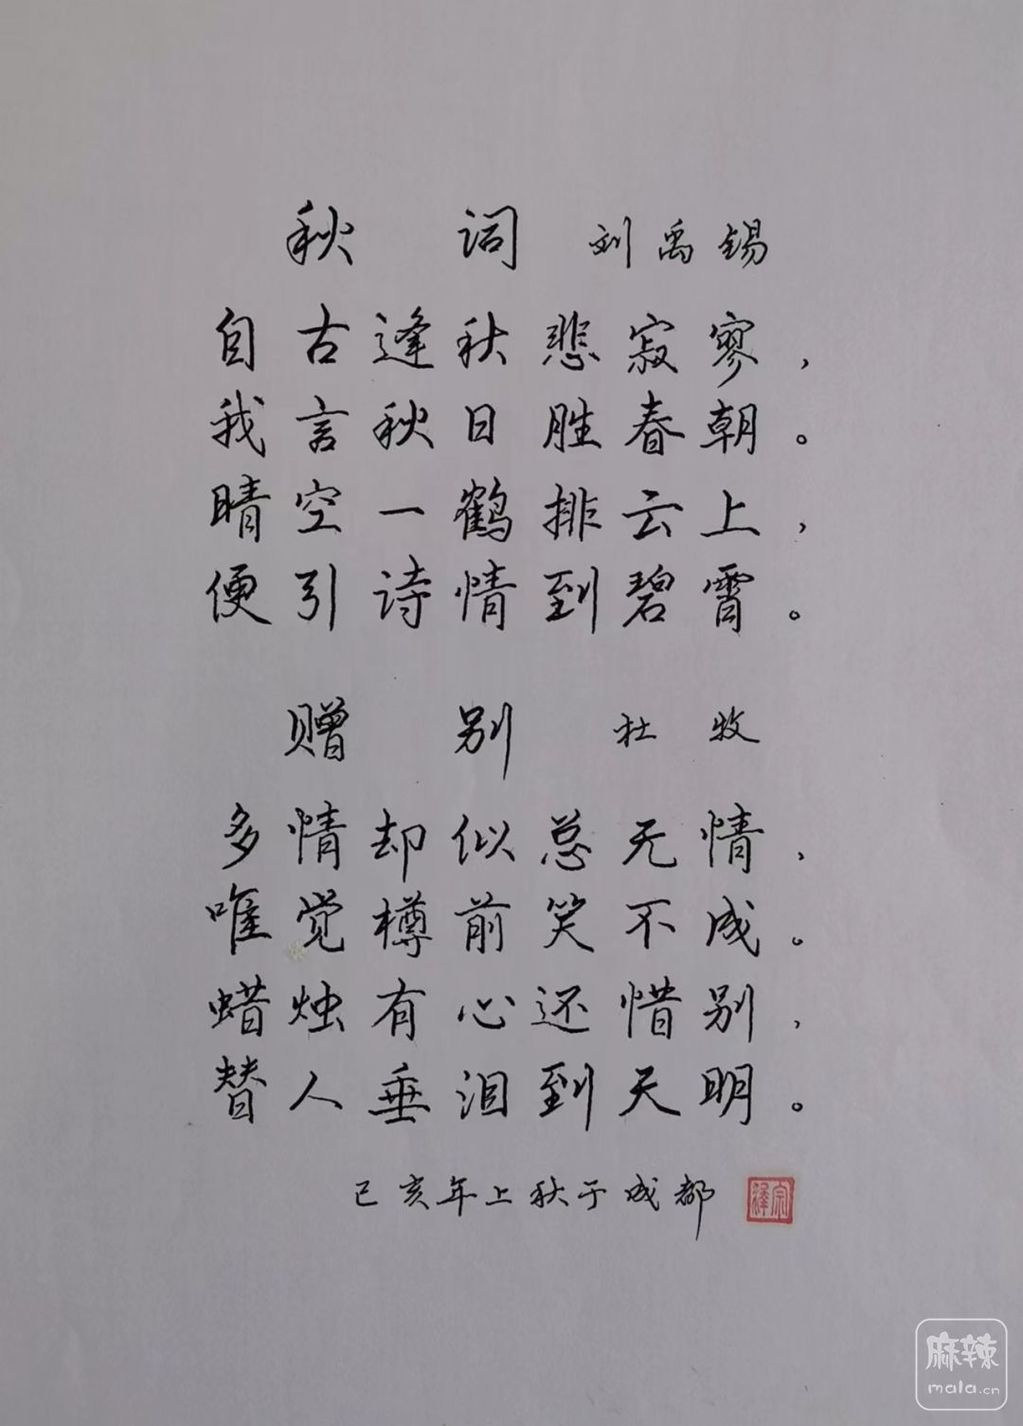 秋词 刘禹锡
自古逢秋悲寂寥，
我言秋日胜春朝。
晴空一鹤排云上，
便引诗情到碧霄。
赠别 杜牧
多情却似总无情，
唯觉樽前笑不成。
蜡烛有心还惜别，
替人垂泪到天明。
己亥年上秋于成都
宗泽
麻辣
mala.cn